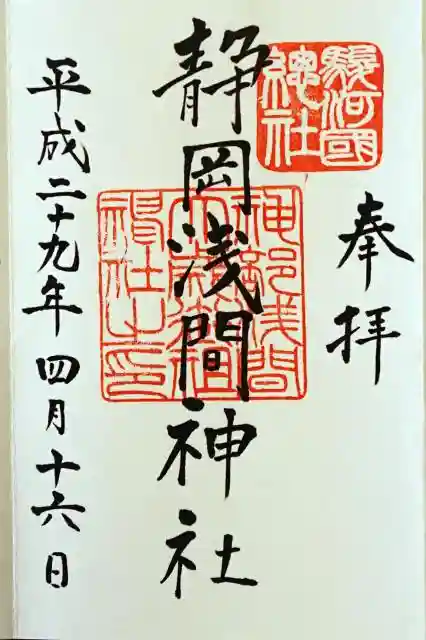 奉拝
駿河國
總社
静岡浅間神社
神部浅間
大歳御祖
神社之印
平成二十九年四月十六日